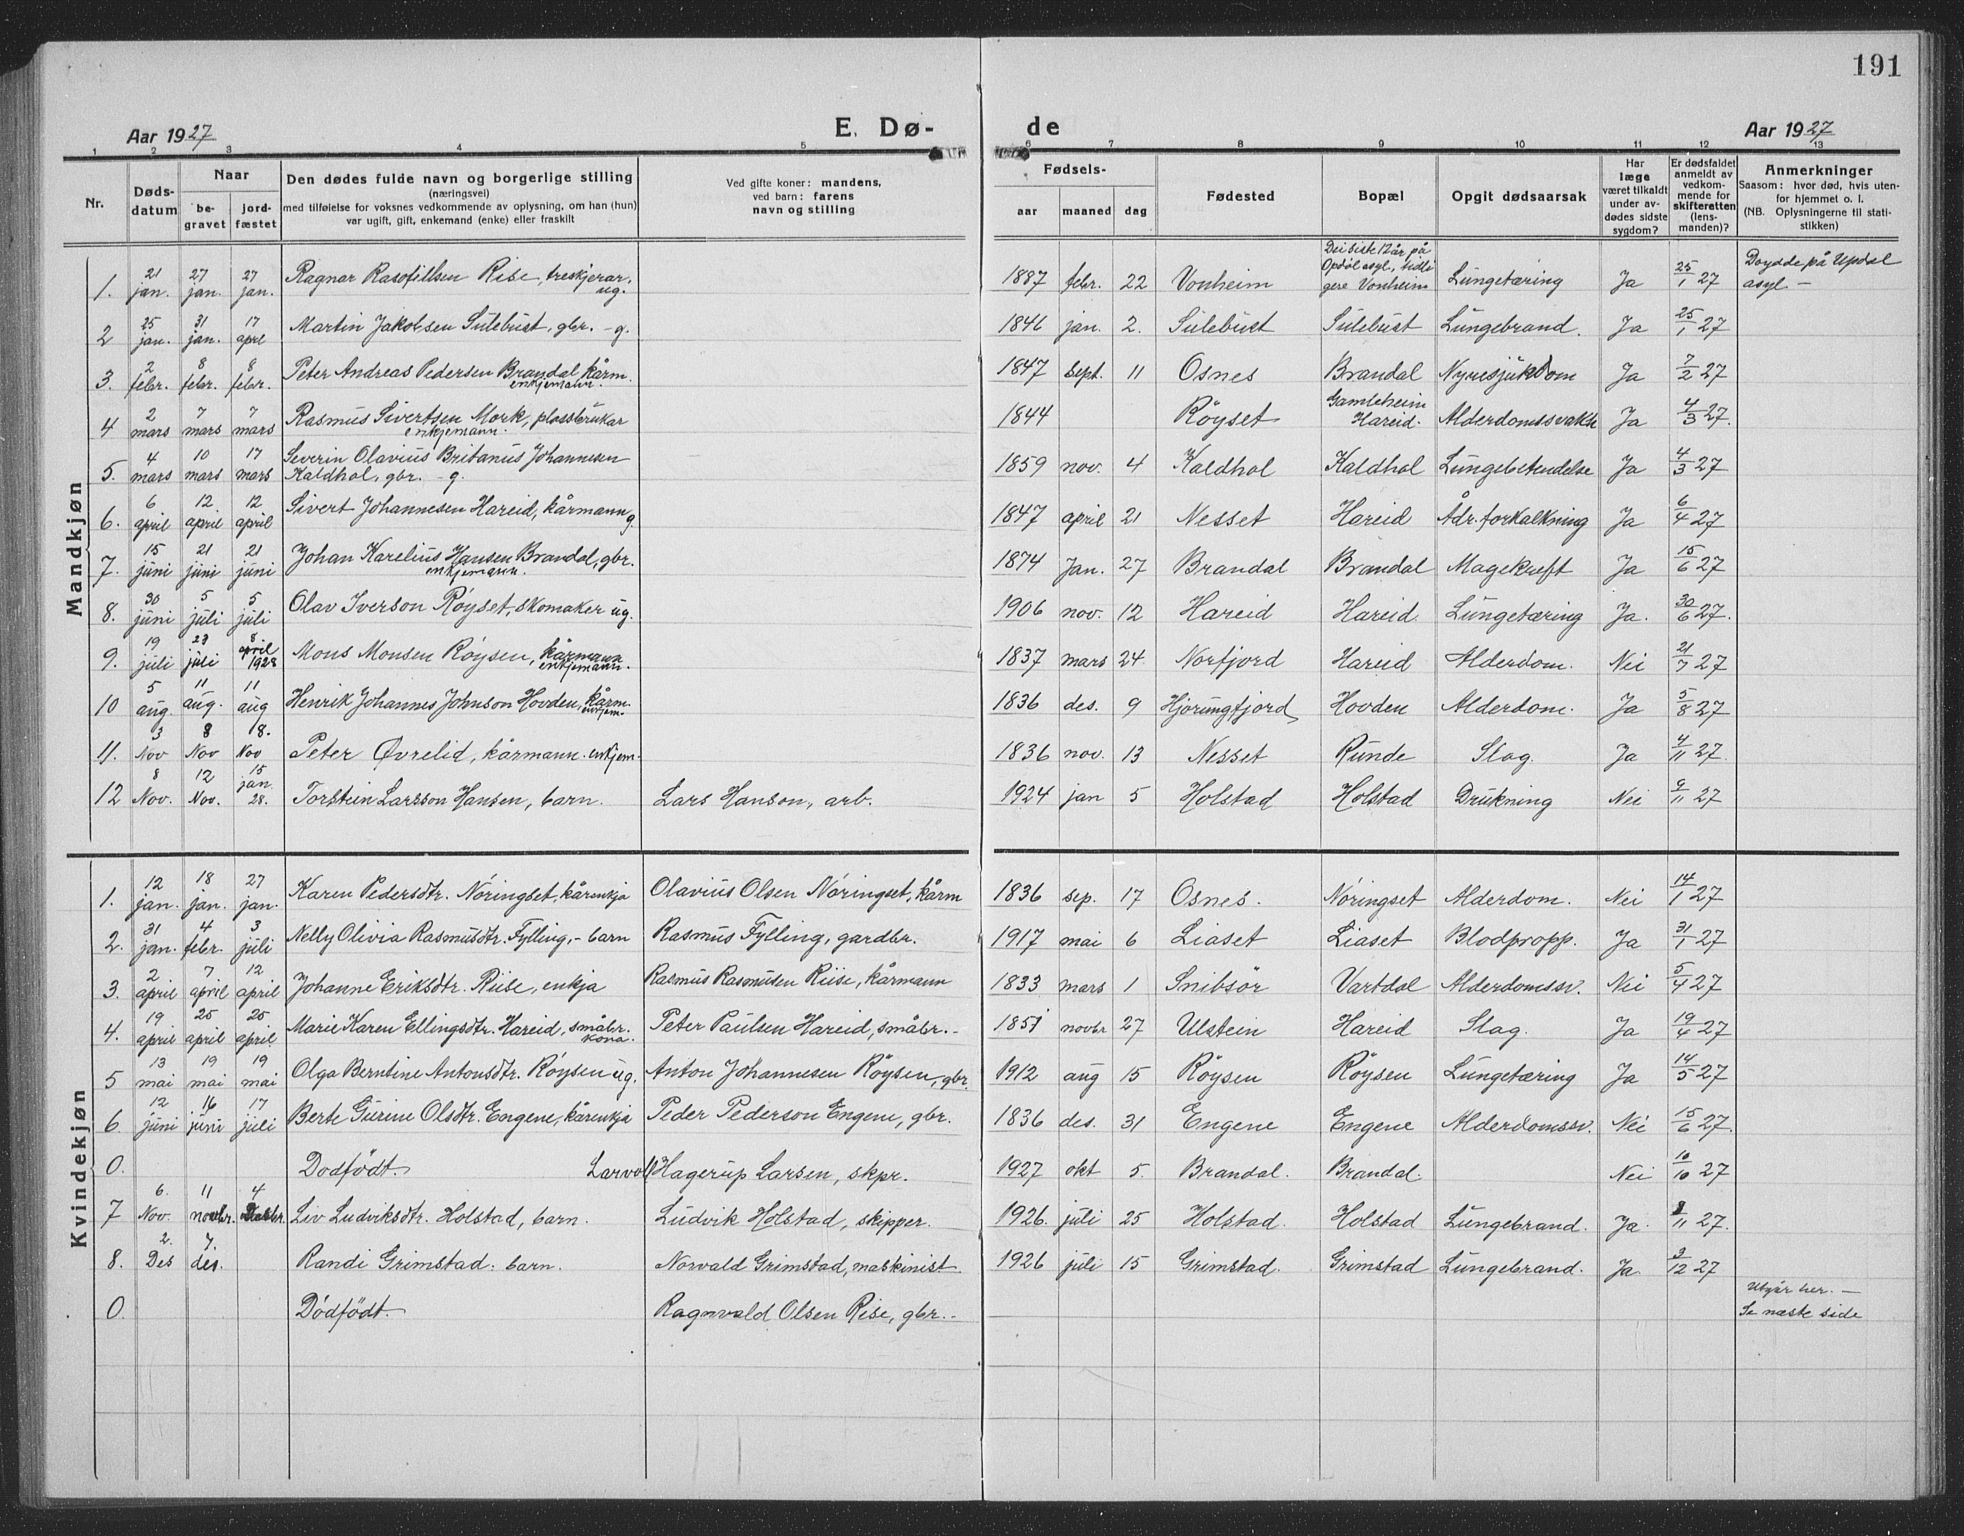 191
Aar 1927 E. Dø- de Aar 1927
1 2 3 4 5 6 7 8 9 10 11 12 13
Nr. Døds-datum Naar be-gravet jord-fæstet Den dødes fulde navn og borgerlige stilling (næringsvei) med tilføielse for voksnes vedkommende av oplysning, om han (hun) var ugift, gift, enkemand (enke) eller fraskilt Ved gifte koner: mandens, ved barn: farens navn og stilling Fødsels- aar maaned dag Fødested Bopæl Opgit dødsaarsak Har læge været tilkaldt under av-dødes sidste sygdom? Er dødsfaldet anmeldt av vedkom-mende for skifteretten (lens-manden)? Anmerkninger Saasom: hvor død, hvis uten-for hjemmet o. l. (NB. Oplysningerne til stati-stikken)
Mandkjøn
1. 21 jan. 27 jan. 27 jan. Ragnar Rise, treskjerar. ug. 1887 febr. 22 Vonheim Dei siste 12 år på Opdøl asyl, tidli gere Vonheim Lungetæring Ja 25/1 27 Doydde på Updal asyl. –
2 25 jan. 31 jan. 17 april Martin Jakobsen Sulebust, gbr. – g. 1846 jan. 2. Sulebust Sulebust Lungebrand. Ja 25/1 27
3. 2 febr. 8 febr. 8 febr. Peter Andreas Pedersen Brandal kårm. enkjemann. 1847 sept. 11 Osnes Brandal Nyresjukdom Ja 7/2 27
4 2 mars 7 mars 7 mars Rasmus Sivertsen Mork, plassbrukar enkjemann. 1844 Røyset Gamleheim Hareid. Alderdomssvakh Ja 4/3 27.
5. 4 mars 10 mars 17 mars Severin Olavius Britanus Johannesen Kaldhol, gbr. – g. 1859 nov. 4 Kaldhol Kaldhol Lungebetendelse Ja 4/3 27
6. 6 april 12. april 12 april Sivert Johannesen Hareid, kårmann g. 1847 april 21 Nesset Hareid Ådr. forkalkning Ja 6/4 27
7. 15 juni 21 juni 21 juni Johan Karelius Hansen Brandal, gbr. enkjemann. 1874 Jan. 27 Brandal Brandal Magekreft Ja 15/6 27
8. 30 juni 5 juli 5 juli Olav Iverson Røyset, skomaker ug. 1906 nov. 12 Hareid Hareid Lungetæring Ja. 30/6 27.
9. 19 juli 23 juli 8 april 1928 Mons Monsen Røysen, kårmann enkjemann. 1837 mars 24 Norfjord Hareid Alderdom. Nei 21/7 27
10 5 aug. 11 aug. 11 aug Henrik Johannes Johnson Hovden, kårm. enkjem. 1836 des. 9 Hjørungfjord Hovden Alderdom. Ja 5/8 27
11. 3 Nov 8 Nov 18. Nov Peter Øvrelid, kårmann. enkjem. 1836 nov. 13 Nesset Runde Slag. Ja 4/11 27.
12 8 Nov. 12 Nov. 15 jan 28. Torstein Larsson Hansen, barn. Lars Hanson, arb. 1924 jan 5 Holstad Holstad Drukning Nei 9/11 27
Kvindekjøn
1. 12 jan. 18 jan. 27 jan. Karen Pedersdtr. Nøringset, kårenkja Olavius Olsen Nøringset, kårm 1836 sep. 17 Osnes. Nøringset Alderdom. Nei 14/1 27
2. 31 jan. 4 febr. 3 juli Nelly Olivia Rasmusdtr. Fylling, – barn Rasmus Fylling, gardbr. 1917 mai 6 Liaset Liaset Blodpropp. Ja 31/1 27
3. 2 april 7 april 12 april Johanne Eriksdtr. Riise, enkja Rasmus Rasmusen Riise, kårmann 1833 mars 1 Snibsør Vartdal Alderdomssv. Nei 5/4 27
4. 19 april 25 april 25 april Marie Karen Ellingsdtr. Hareid, småbr. kona. Peter Paulsen Hareid, småbr. – 1851 novbr 27 Ulstein Hareid Slag. Ja 19/4 27
5 13 mai 19 mai 19 mai Olga Berntine Antonsdtr. Røysen ug. Anton Johannesen Røysen, gbr. 1912 aug 15 Røysen Røysen Lungetæring Ja 14/5 27
6. 12 juni 16 juni 17 juli Berte Gurine Olsdtr. Engene, kårenkja Peder Pederson Engene, gbr. 1836 des. 31 Engene Engene Alderdomssv. Nei 15/6 27.
0. Dødfødt. Larvoll Hagerup Larsen, skpr. 1927 okt 5. Brandal. Brandal. Nei 10/10 27
7 6. Nov. 11 novbr. 4 Liv Ludviksdtr. Holstad, barn. Ludvik Holstad, skipper. 1926. juli 25 Holstad. Holstad Lungebrand. Ja. 8/11 27.
8. 2. Des 7 des. Randi Grimstad. barn. Norvald Grimstad, maskinist 1926 juli 15 Grimstad. Grimstad Lungebrand. Ja. 3/12 27
0. Dødfødt. Ragnvald Olsen Rise, gbr. – Utgår her. – Se næste side